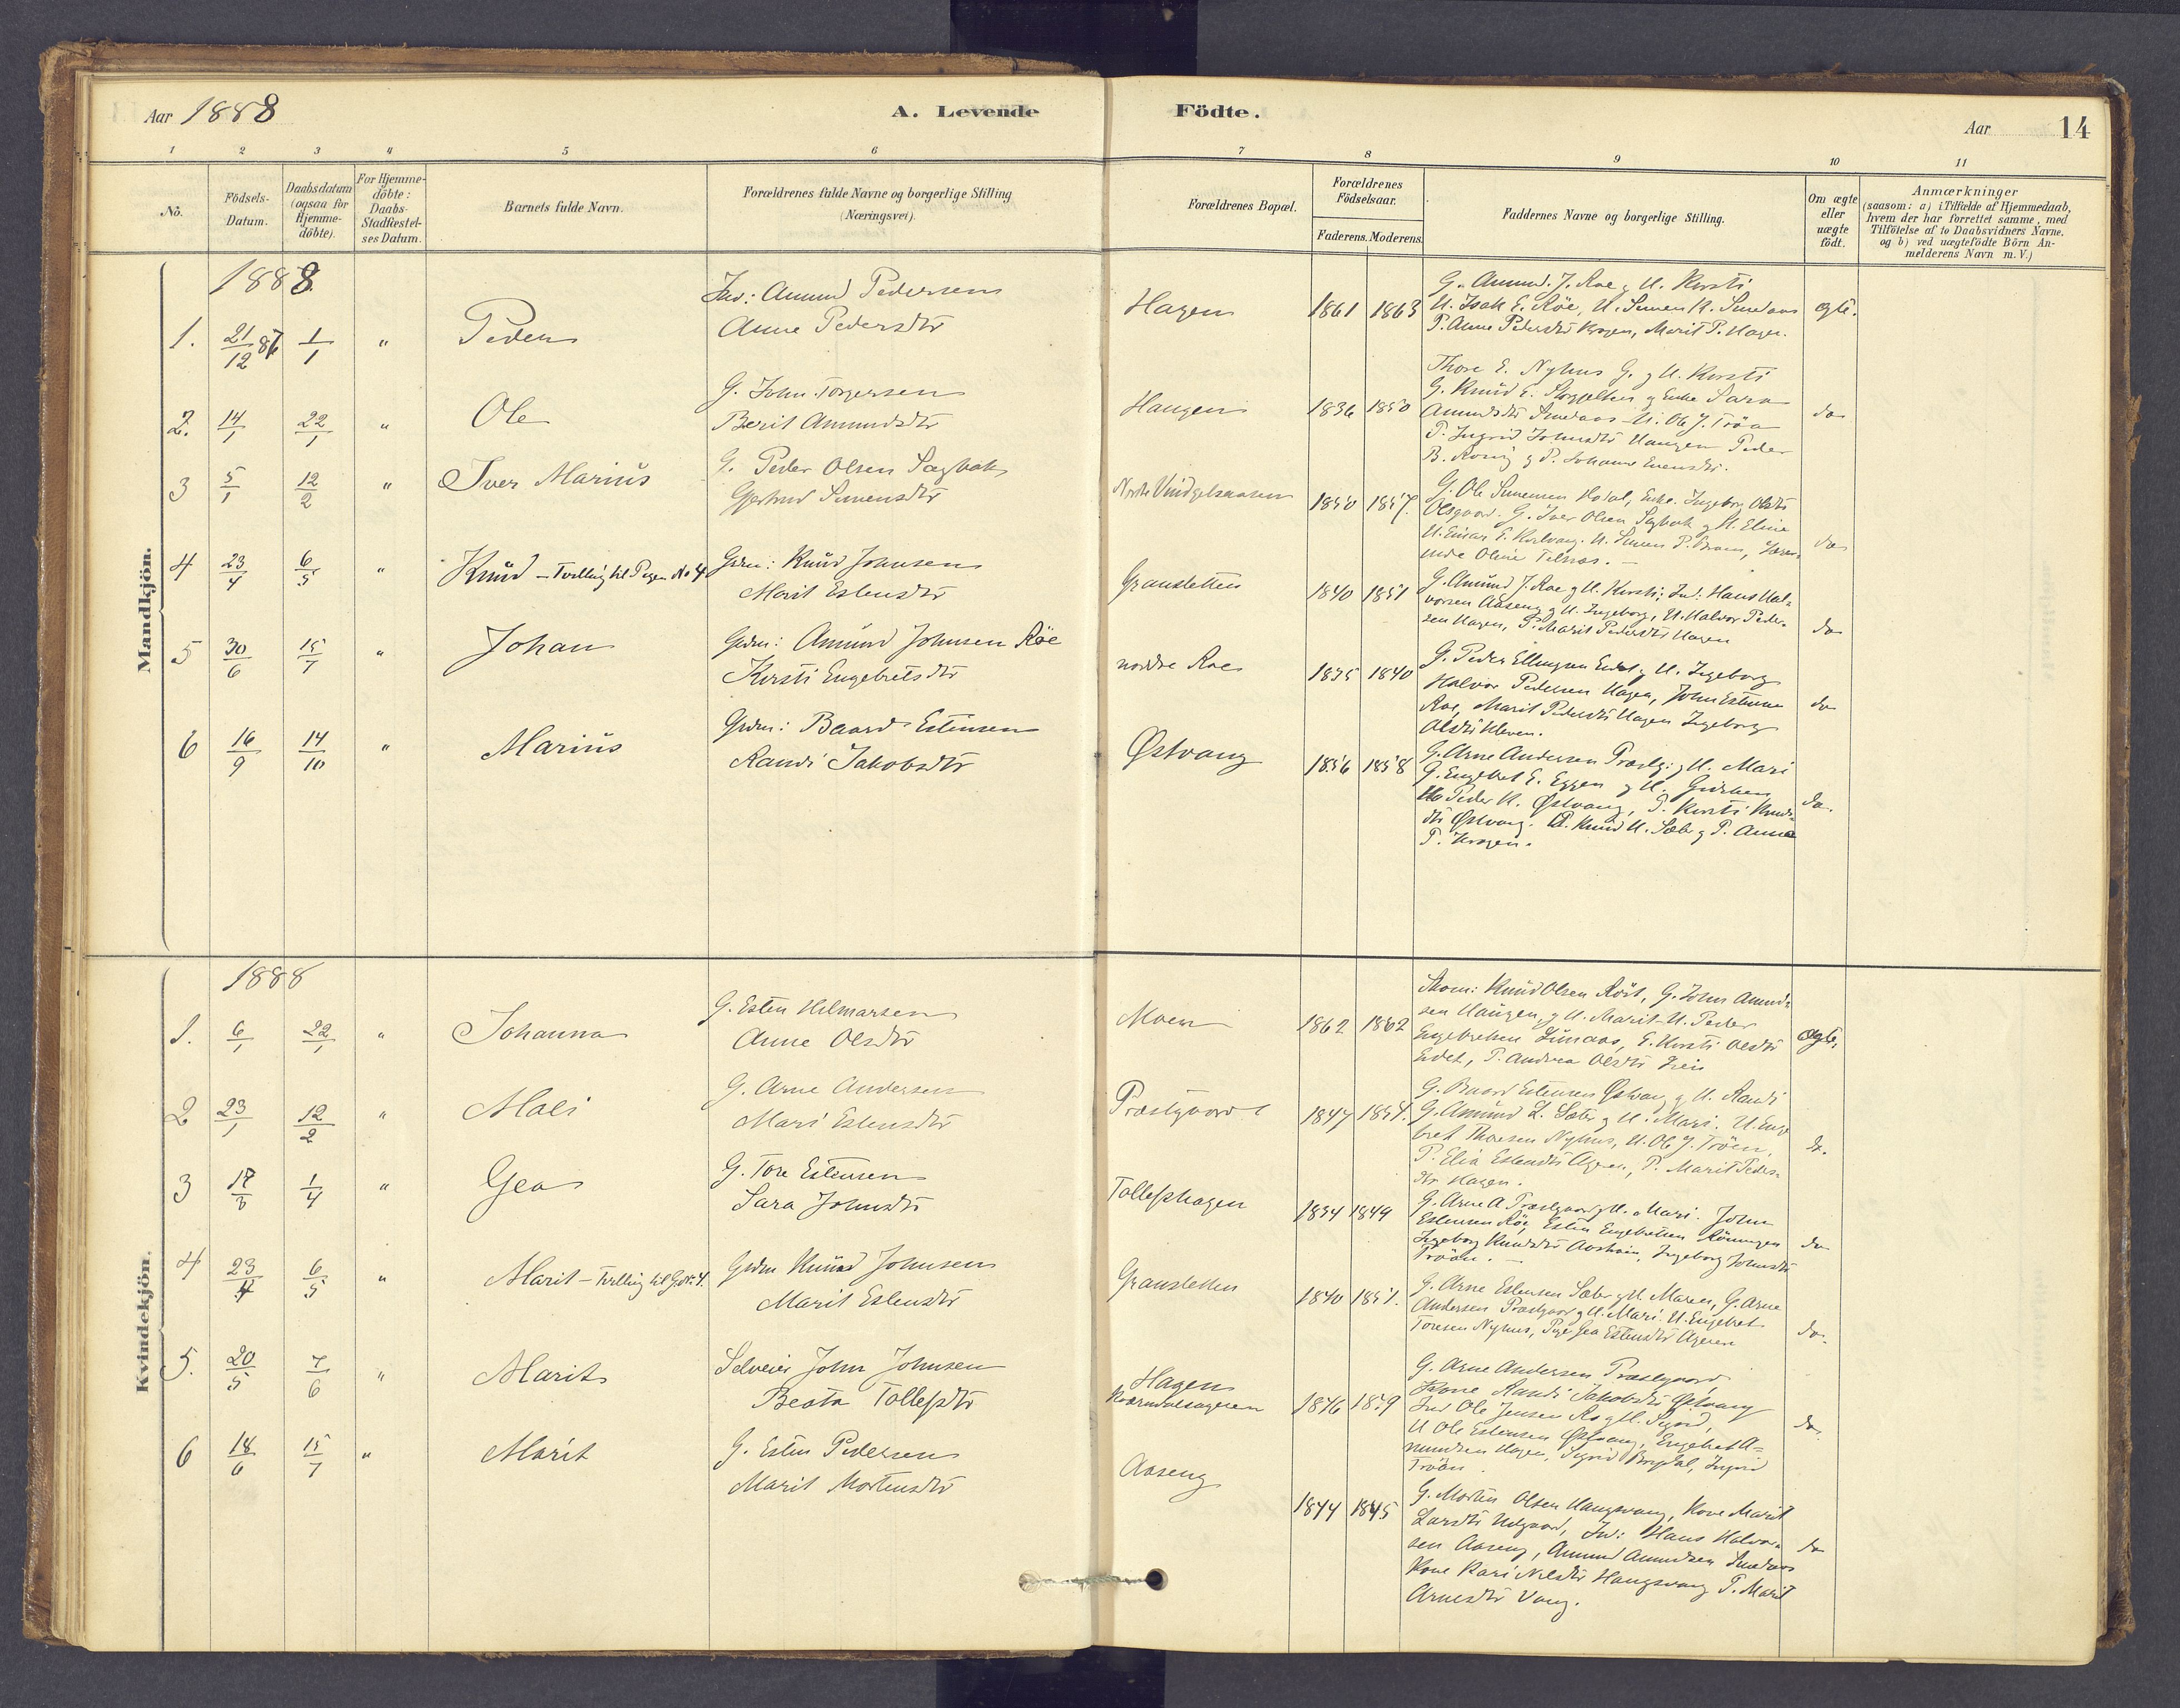 Aar 1888
A. Levende Födte.
Aar 14
1 2 3 4 5 6 7 8 9 10 11
No.
Födsels-Datum.
Daabsdatum (ogsaa for Hjemme-döbte).
For Hjemme-döbte: Daabs-Stadfæstel-ses Datum.
Barnets fulde Navn.
Forældrenes fulde Navne og borgerlige Stilling (Næringsvei).
Forældrenes Bopæl.
Forældrenes Födselsaar.
Faderens. Moderens.
Faddernes Navne og borgerlige Stilling.
Om ægte eller uægte födt.
Anmærkninger
(saasom: a) i Tilfælde af Hjemmedaab,
hvem der har forrettet samme, med
Tilföielse af to Daabsvidners Navne,
og b) ved uægtefödte Börn An-
melderens Navn m. V.)
Mandkjön.
1888
1. 21/12 87 1/1 " Peder
Ind: Amund Pedersen
Anne Pedersdtr
Hagen 1861 1863
G. Amund J. Roe og H. Kirsti
U. Isak E. Röe, U. Simen K.
P. Anne Pedersdtr Krogen, Marit P. Hagen.
ægte.
2. 14/1 22/1 " Ole
G. John Torgersen
Berit Amundsdtr
Haugen 1836 1850
Thore E. Nyhus G. og H. Kirsti
G. Knud E. og Enke Sara
Amundsdtr U. Ole J. Tröa
P. Ingrid Johnsdtr Haugen Peder
do
3 5/1 12/2 " Iver Marius
G. Peder Olsen Sagbak
Gjertrud Simensdtr
1850 1857.
G. Ole Simensen Hodal, Enke Ingeborg Olsdtr
G. Iver Olsen Sagbak og H. Eline
do
4 23/4 6/5 " Knud – Tvilling til Pigen No 4
Grdm: Knud Johnsen
Marit Estensdtr
Gransletten 1840 1851
G. Amund J. Roe og H. Kirsti; Ind: Hans Hal-
vorsen Aaseng og H. Ingeborg, U. Halvor Peder-
sen Hagen, P. Marit Pedersdtr Hagen
do
5 30/6 15/7 " Johan
Grdm: Amund Johnsen Röe
Kirsti Engebretsdtr
nordre Roe 1835 1840
G. Peder Ellingsen Eidet og H. Ingeborg
Halvor Pedersen Hagen, John Estensen
Roe, Marit Pedersdtr Hagen Ingeborg
Olsdtr Kleven.
do
6 16/9 14/10 " Marius
Grdm: Baard Estensen
Randi Jakobsdtr
Østvang 1856 1858
G. Arne Andersen Præstg: og H. Mari
G. Engebret E. Eggen og H. Gurine
Peder K. Østvang, P. Kirsti Knuds-
dtr Østvang. Knud H. Sæter og P. Anne
P. Krogen.
do.
Kvindekjön.
1888
1. 6/1 22/1 " Johanna
G. Esten Hilmarsen
Anne Olsdtr
Moen 1862 1862
Knud Olsen Röst, G. John Amund-
sen Haugen, og H. Marit U. Peder
Engebretsen E. Kirsti Olsdtr
Eidet, P. Andrea Olsdtr
ægte,
2 23/1 12/2 " Mali
G. Arne Andersen
Mari Estensdtr
Præstgaard 1847 1854.
G. Baard Estensen Østvang og H. Randi
G. Amund L. Sæter og H. Mari. U. Enge
bret Thoresen Nyhus, U. Ole J. Tröen,
P. Elia Estensdtr Ageren, P. Marit Peders-
dtr Hagen.
do.
3 18/3 1/4 " Gea
G. Tore Estensen
Sara Johnsdtr
Tollefshagen 1854 1849
G. Arne A Præstgaard og H. Mari. John
Estensen Röe, Esten Engebretsen Röningen
Ingeborg Knudsdtr Ingeborg Johnsdtr
Tröan.
do
4 23/4 6/5 " Marit – Tvilling til G. No. 4.
Grdm Knud Johnsen
Marit Estensdtr
Gransletten 1840 1851.
G. Arne Estensen Sæter og H. Maren, G. Arne
Andersen Præstgaard og H. Mari. U. Engebret
Toresen Nyhus, Pige Gea Estensdtr Ageren
do.
5. 20/5 7/6 " Marit
Selveier John Johnsen
Beata Tollefsdtr
Hagen
Kværndalsageren 1846 1849
G. Arne Andersen Præstgaard,
Kone Randi Jakobsdtr Østvang
Ind Ole Jensen Ro og H. Sigrid,
U Ole Estensen Østvang, Engebret A-
mundsen Hagen, Sigrid Ingrid
Tröan.
do.
6 18/6 15/7 " Marit
G. Esten Pedersen
Marit Mortensdtr
Aaseng 1844 1845
G. Morten Olsen Haugsvang, Kone Marit
Larsdtr Ind: Hans Halvor-
sen Aaseng, Amund Amundsen
Kone Kari Nilsdtr Haugsvang P. Marit
Arnesdtr Vang.
do